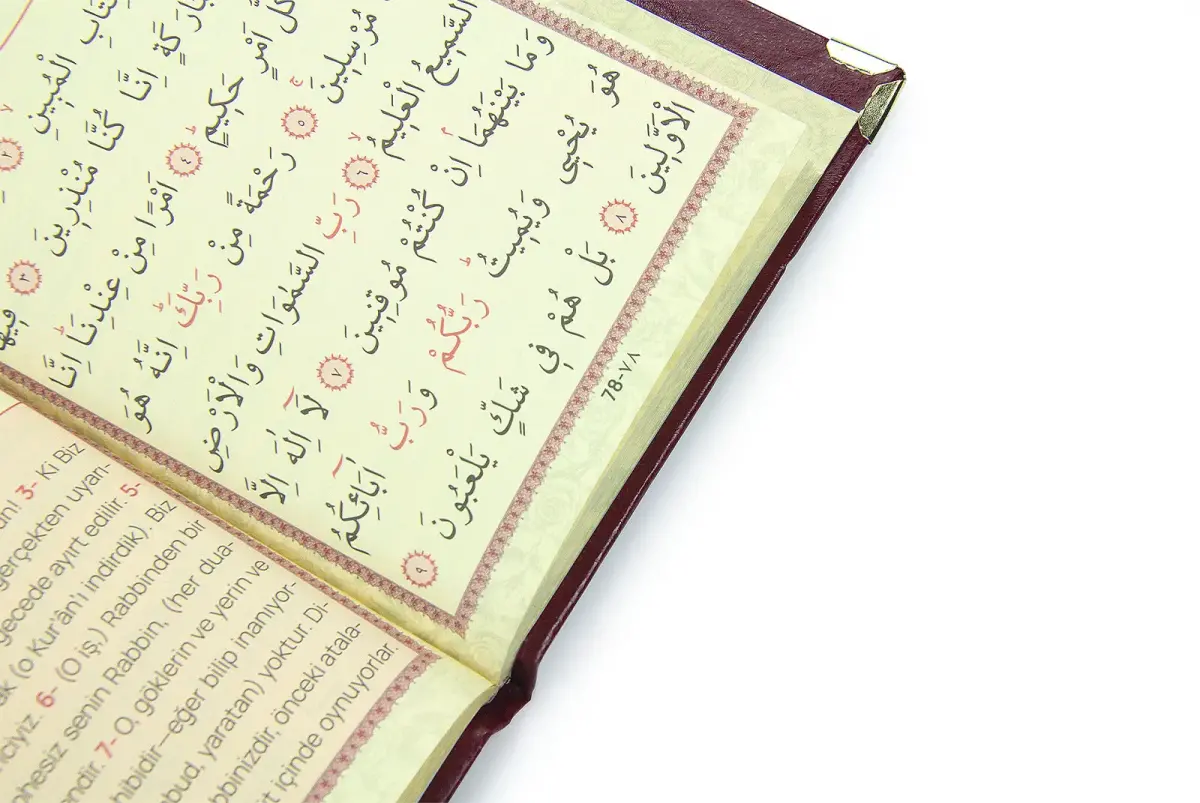 الْمُبِينِۙ ٢
اِنَّا كُنَّا مُنْذِرِينَ ٣ فِيهَا
كُلُّ اَمْرٍ حَكِيمٍۙ ٤ اَمْرًا مِنْ عِنْدِنَاۜ اِنَّا
مُرْسِلِينَۚ ٥ رَحْمَةً مِنْ رَبِّكَۜ اِنَّهُ هُوَ
السَّمِيعُ الْعَلِيمُۙ ٦ رَبِّ السَّمٰوَاتِ وَالْاَرْضِ
وَمَا بَيْنَهُمَاۢ اِنْ كُنْتُمْ مُوقِنِينَ ٧ لَٓا اِلٰهَ اِلَّا
هُوَ يُحْيِي وَيُمِيتُۜ رَبُّكُمْ وَرَبُّ اٰبَٓائِكُمُ
الْاَوَّلِينَ ٨ بَلْ هُمْ فِي شَكٍّ يَلْعَبُونَ ٩
78-٧٨
3- Ki Biz
gerçekten uyarı-
gecede ayırt edilir. 5-
(o Kur'ân'ı indirdik). Biz
6- (O iş,) Rabbinden bir
senin Rabbin, (her dua-
7- O, göklerin ve yerin ve
hibidir—eğer bilip inanıyor-
yaratan) yoktur. Di-
bbinizdir, önceki atala-
içinde oynuyorlar.